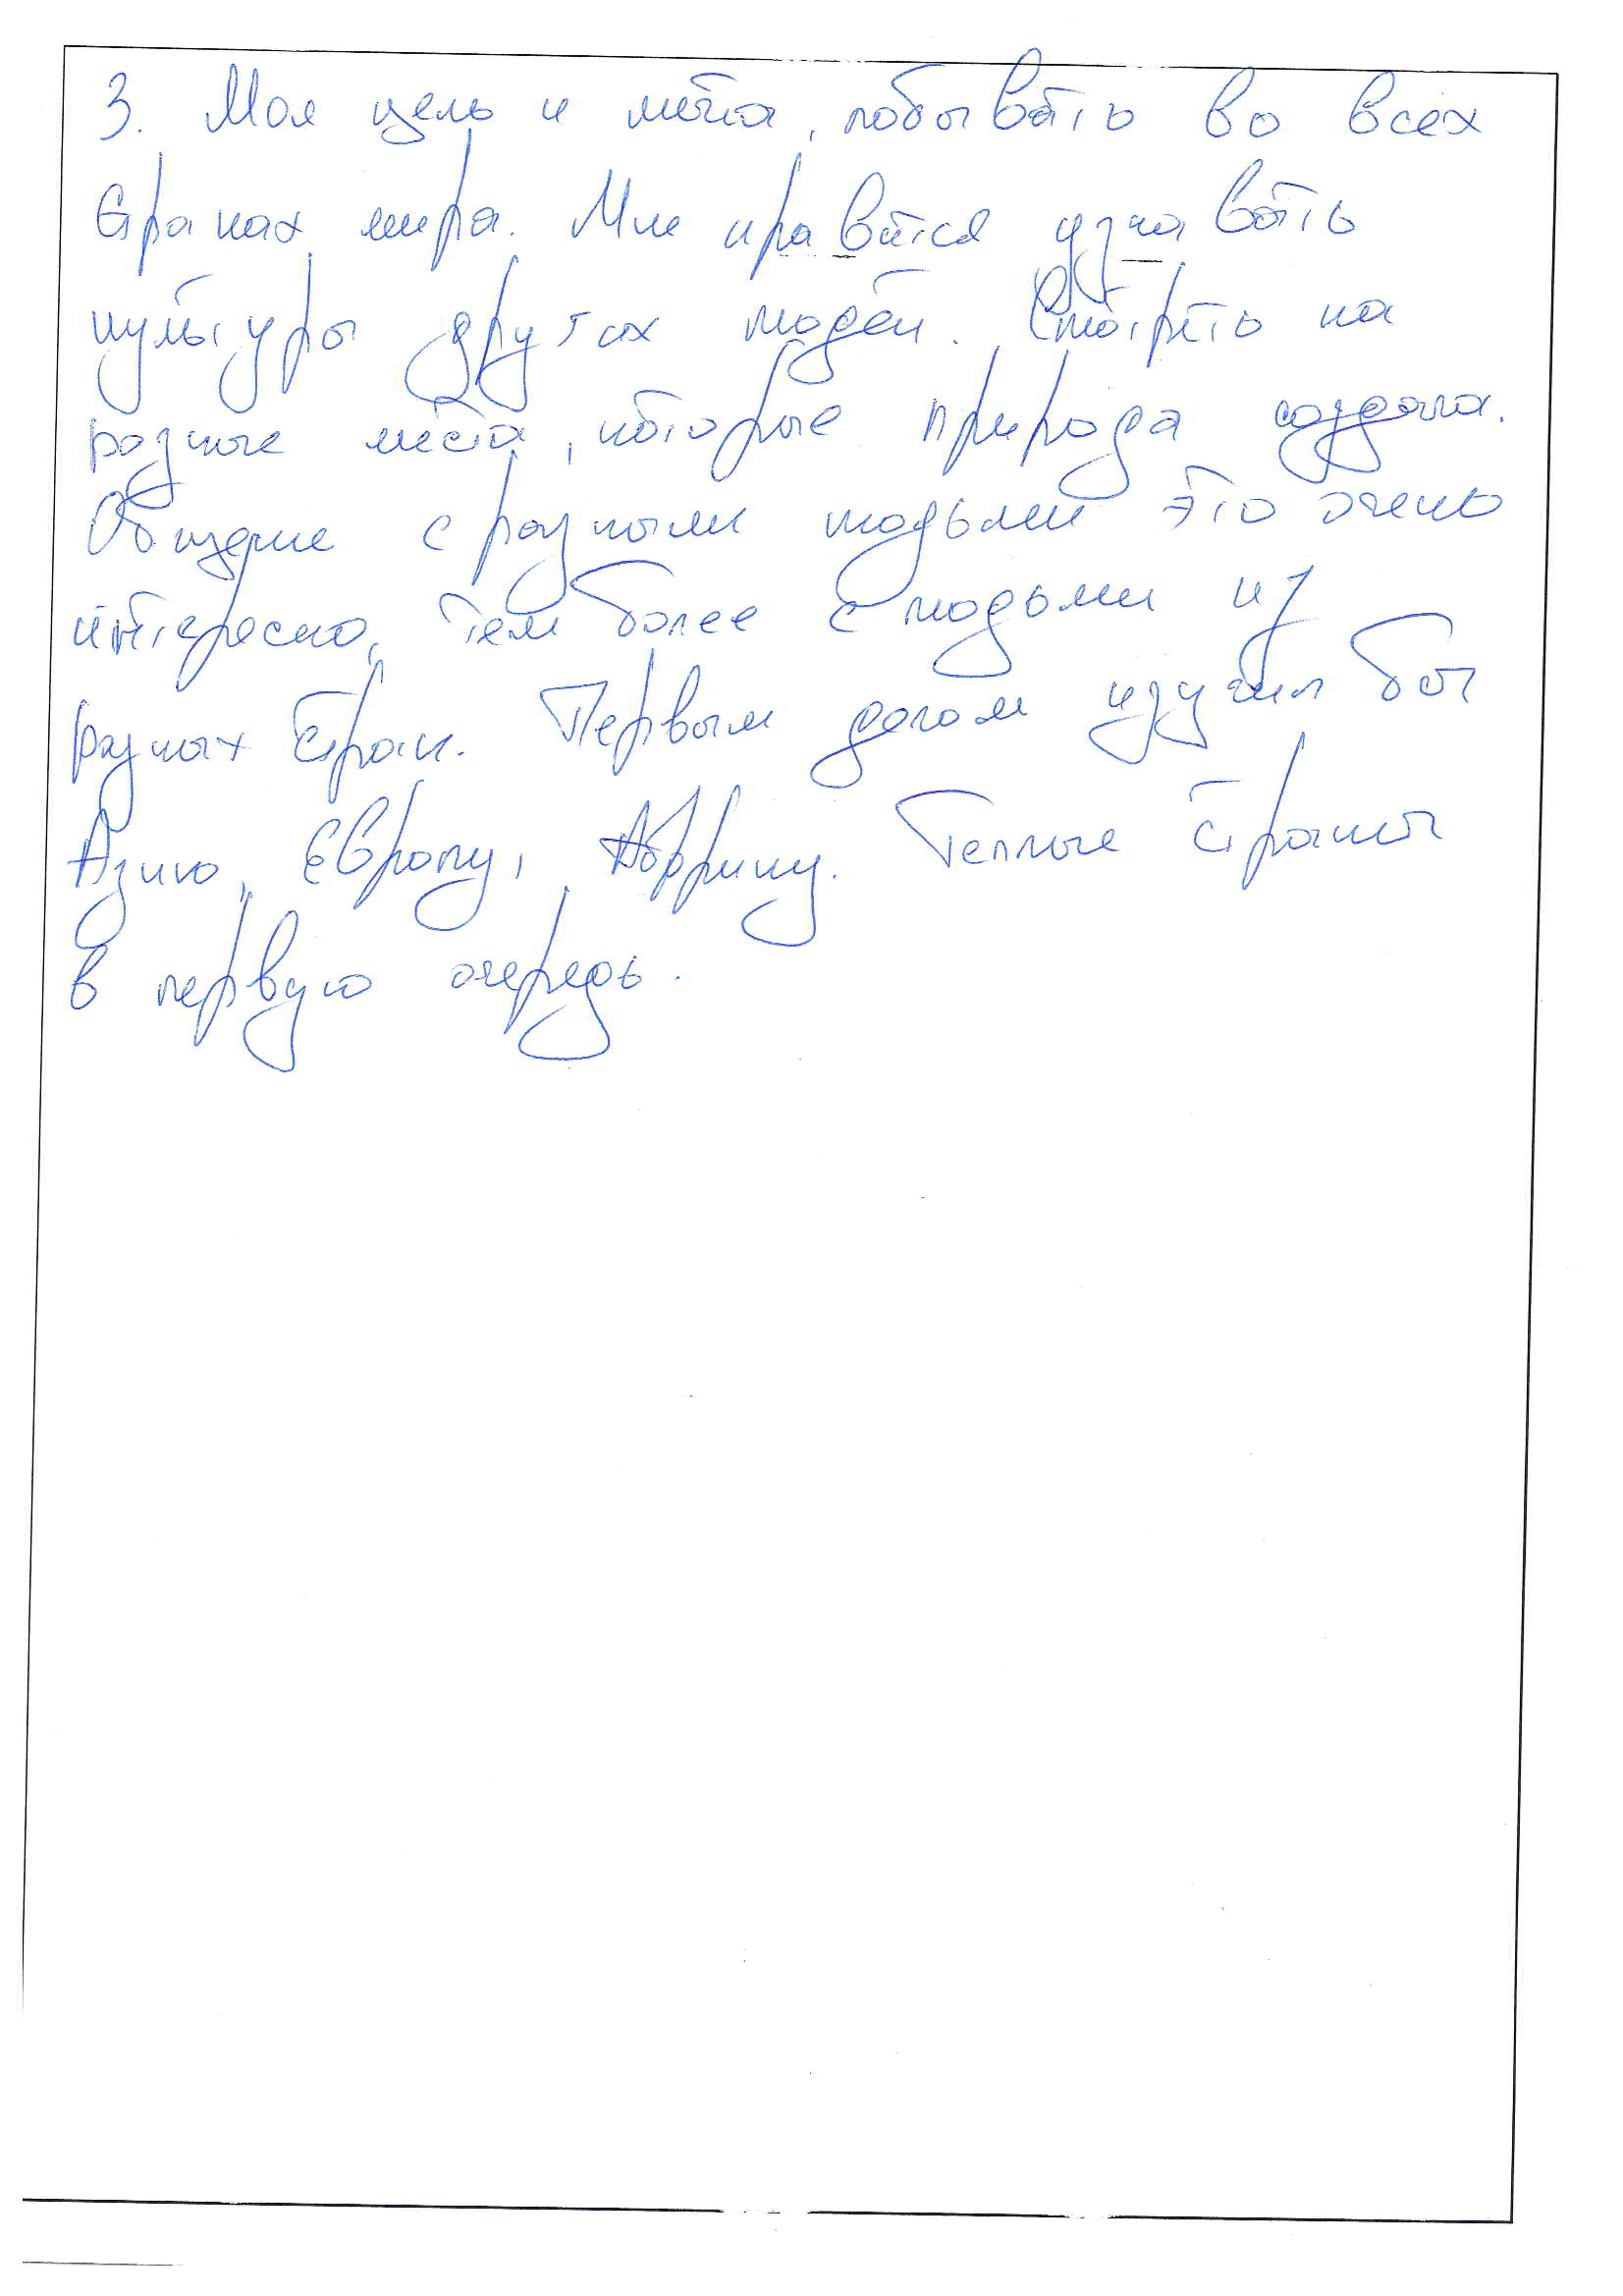 3. Моя цель и мечта, побывать во всех
странах мира. Мне нравится узнавать
культуры других людей. Смотреть на
разные места, которые природа создала.
Общение с разными людьми это очень
интересно, тем более с людьми из
разных стран. Первым делом изучил бы
Азию, Европу, Африку. Теплые страны
в первую очередь.